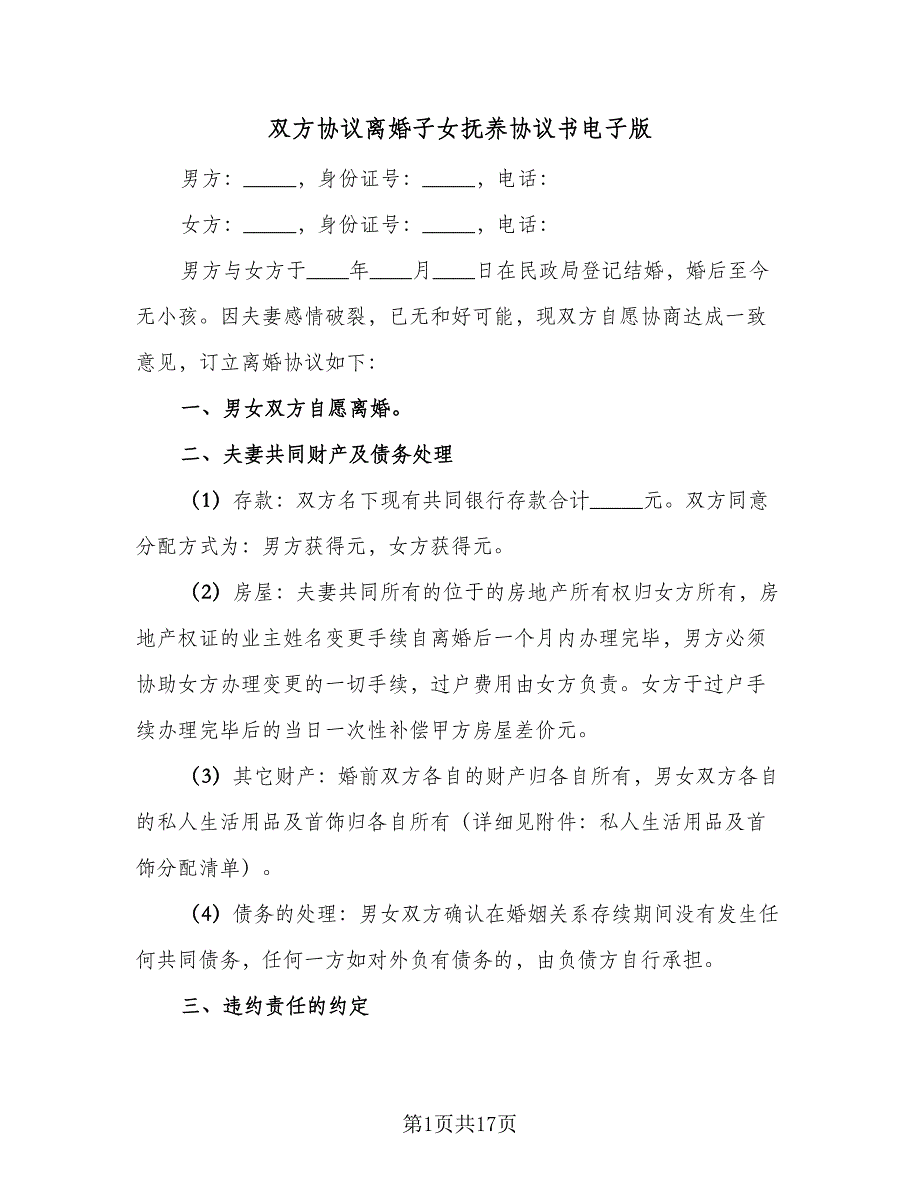 双方协议离婚子女抚养协议书电子版
男方：_____，身份证号：_____，电话：
女方：_____，身份证号：_____，电话：
男方与女方于____年____月____日在民政局登记结婚，婚后至今
无小孩。因夫妻感情破裂，已无和好可能，现双方自愿协商达成一致
意见，订立离婚协议如下：
一、男女双方自愿离婚。
二、夫妻共同财产及债务处理
（1）存款：双方名下现有共同银行存款合计_____元。双方同意
分配方式为：男方获得元，女方获得元。
（2）房屋：夫妻共同所有的位于的房地产所有权归女方所有，房
地产权证的业主姓名变更手续自离婚后一个月内办理完毕，男方必须
协助女方办理变更的一切手续，过户费用由女方负责。女方于过户手
续办理完毕后的当日一次性补偿甲方房屋差价元。
（3）其它财产：婚前双方各自的财产归各自所有，男女双方各自
的私人生活用品及首饰归各自所有（详细见附件：私人生活用品及首
饰分配清单）。
（4）债务的处理：男女双方确认在婚姻关系存续期间没有发生任
何共同债务，任何一方如对外负有债务的，由负债方自行承担。
三、违约责任的约定
第1页共17页